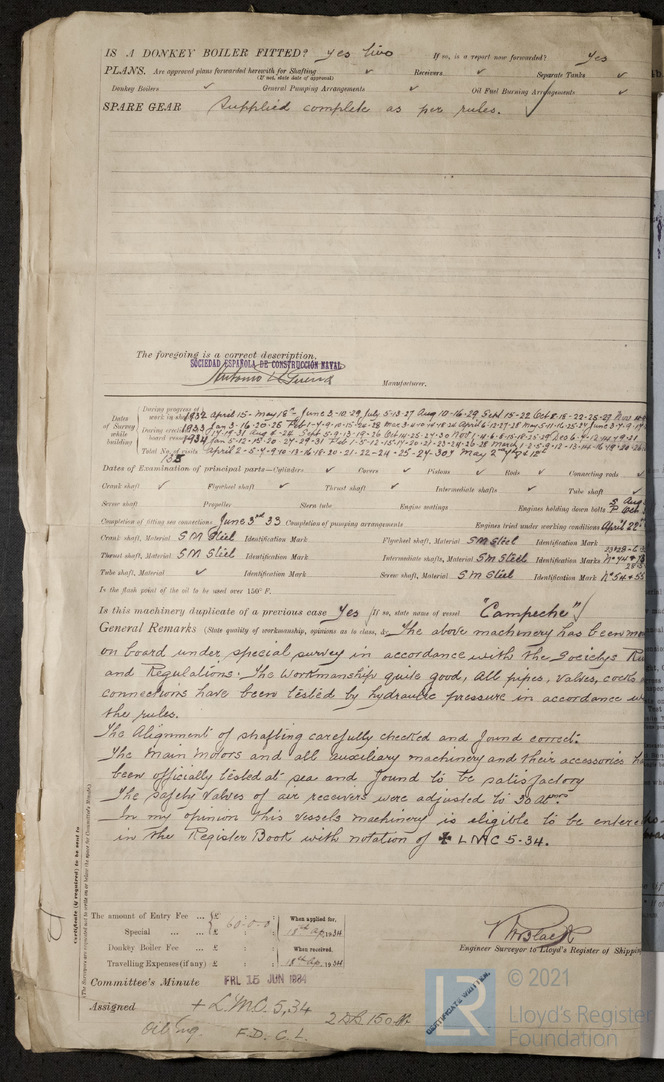 IS A DONKEY BOILER FITTED? Yes two If so, is a report now forwarded? Yes
PLANS. Are approved plans forwarded herewith for Shafting ✓ Receivers ✓ Separate Tanks ✓
(If not, state date of approval)
Donkey Boilers ✓ General Pumping Arrangements ✓ Oil Fuel Burning Arrangements ✓
SPARE GEAR Supplied complete as per rules. ✓
The foregoing is a correct description,
SOCIEDAD ESPAÑOLA DE CONSTRUCCIÓN NAVAL
Manufacturer.
Dates of Survey while building
During progress of work in shops 1932 April 15 - May 18th June 3-10-29 July 5-13-27 Aug 10-16-29 Sept 15-22 Oct 8-15-22-25-27
During erection on board vessel 1933 Jan 3-16-20-26 Feb 1-7-9-10-15-20-28
1934 Jan 5-12-15-20-27-29-31 Feb 1-5-12
Total No. of visits 138 April 2-5-7-9-10-13-16-18-20-21-22-24-25-27-30 May 2nd
Dates of Examination of principal parts—Cylinders ✓ Covers ✓ Pistons ✓ Rods ✓ Connecting rods ✓
Crank shaft ✓ Flywheel shaft ✓ Thrust shaft ✓ Intermediate shafts ✓ Tube shaft ✓
Screw shaft Propeller Stern tube Engine seatings Engines holding down bolts S Aug P Oct
Completion of fitting sea connections June 3rd 33 Completion of pumping arrangements Engines tried under working conditions April 22
Crank shaft, Material S M Steel Identification Mark Flywheel shaft, Material S M Steel Identification Mark
Thrust shaft, Material S M Steel Identification Mark Intermediate shafts, Material S M Steel Identification Marks
Tube shaft, Material ✓ Identification Mark Screw shaft, Material S M Steel Identification Mark Nº 54 & 55
Is the flash point of the oil to be used over 150° F.
Is this machinery duplicate of a previous case Yes If so, state name of vessel "Campeche"
General Remarks (State quality of workmanship, opinions as to class, &c. The above machinery has been
on board under special survey in accordance with the Societys Ru
and Regulations. The Workmanship quite good, All pipes, valves, cocks
connections have been tested by hydraulic pressure in accordance w
the rules.
The Alignment of shafting carefully checked and found correct.
The Main Motors and all auxiliary machinery and their accessories ha
been officially tested at sea and found to be satisfactory
The safety valves of air receivers were adjusted to 30 atmos.
In my opinion this vessels machinery is eligible to be entered
in the Register Book with notation of ✠ LMC 5-34.
Certificate (if required) to be sent to
(The Surveyors are requested not to write on or below the space for Committee's Minute.)
The amount of Entry Fee ... £ 60-0-0 When applied for,
Special ... ... £ 18th Ap. 1934
Donkey Boiler Fee ... £ When received,
Travelling Expenses (if any) £ 18th Ap. 1934
Engineer Surveyor to Lloyd's Register of Shipping
Committee's Minute FRI. 15 JUN 1934
Assigned + L.M.C. 5,34
2 DB 150 lb
Oil Eng. F.D. C.L.
CERTIFICATE WRITTEN.
LR
© 2021
Lloyd's Register
Foundation